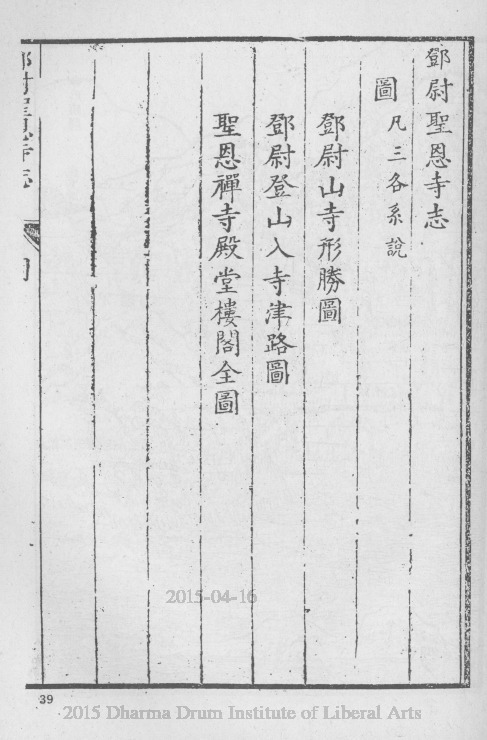 鄧尉聖恩寺志
圖 凡三各系說
鄧尉山寺形勝圖
鄧尉登山入寺津路圖
聖恩禪寺殿堂樓閣全圖
2015-04-16
39
2015 Dharma Drum Institute of Liberal Arts